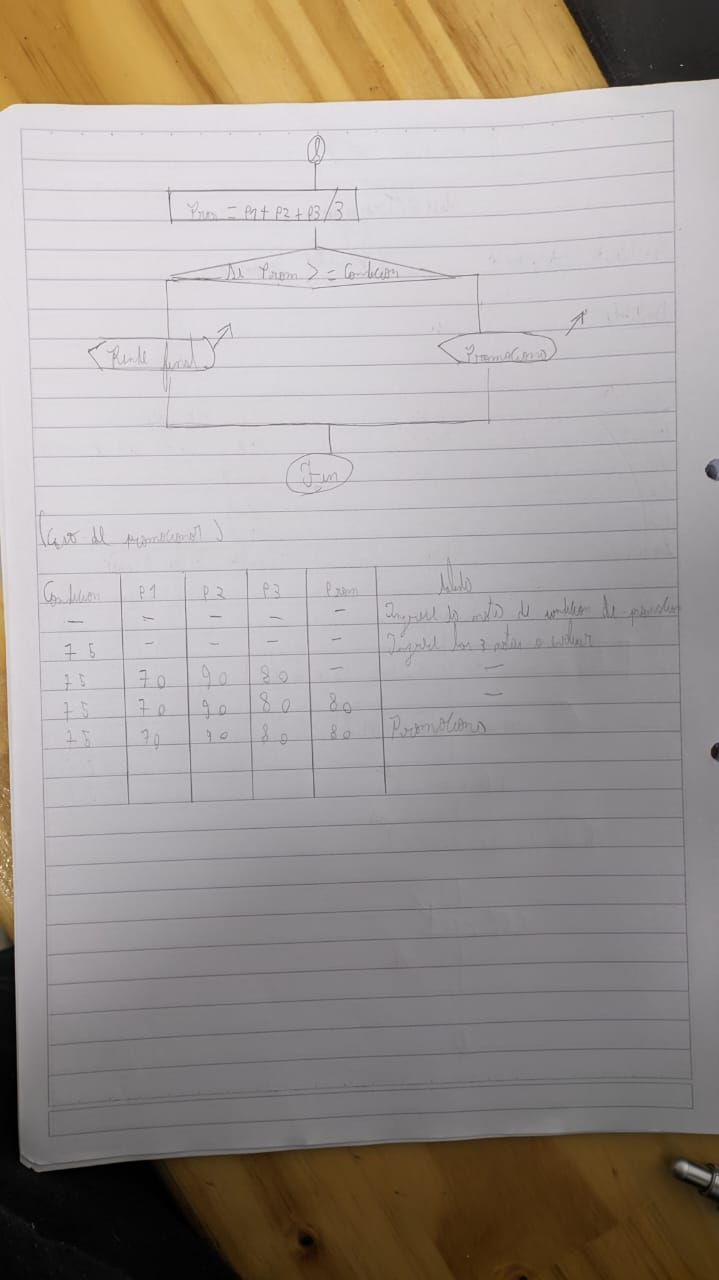 Prom = P1 + P2 + P3 / 3
Si Prom >= Condicion
Rinde final
Promociona
Fin
Condicion P1 P2 P3 Prom Salida
- - - - - Ingrese la nota de condicion de promocion
75 - - - - Ingrese las 3 notas a evaluar
75 70 90 80 - -
75 70 90 80 80 -
75 70 90 80 80 Promociona